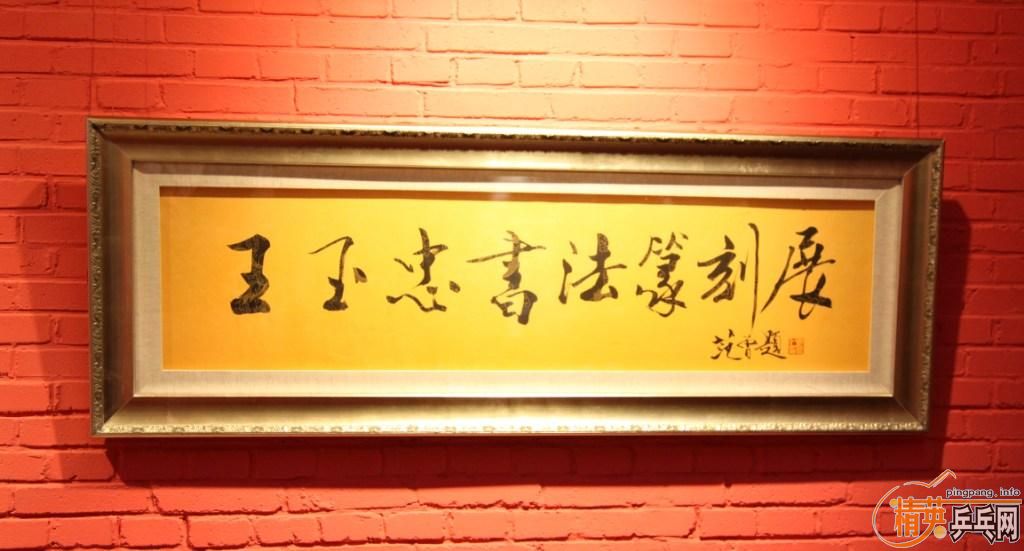 王玉忠書法篆刻展
范曾題
pingpang.info
精英乒乓网